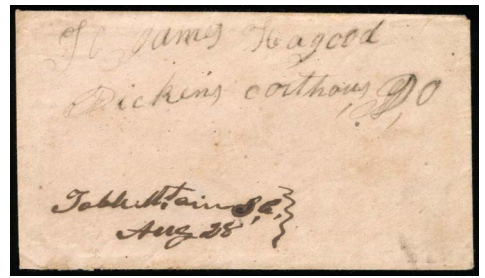 To James Hagood
Pickens corthous, P,O
Table Mtain S,C,
Aug 28